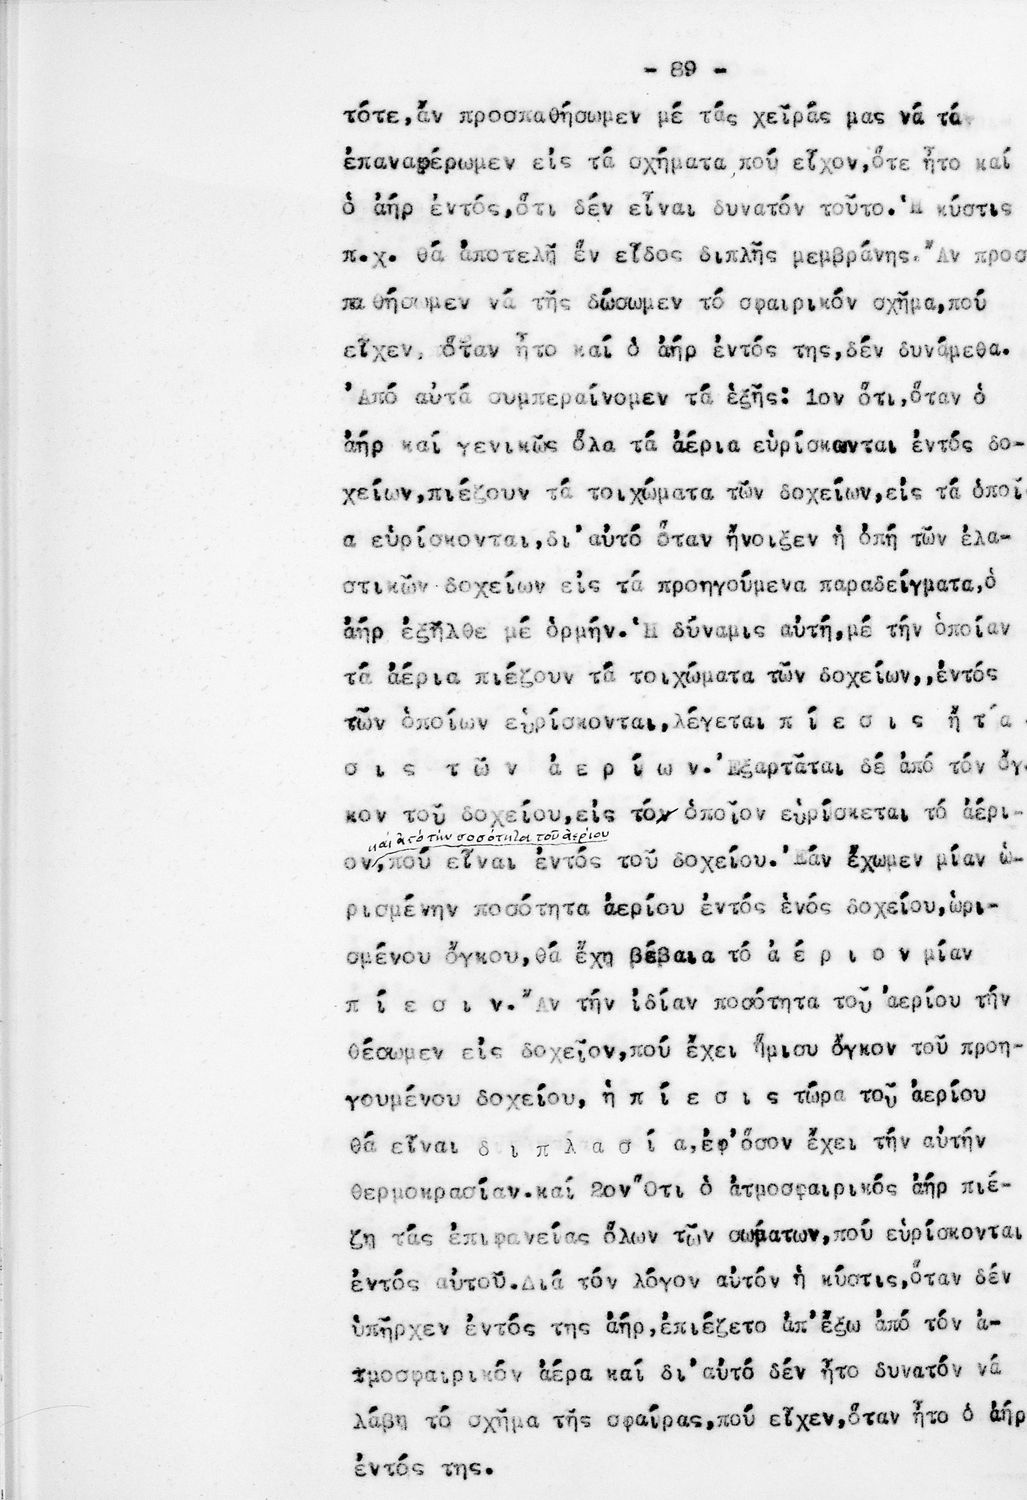 - 89 -
τότε,ἄν προσπαθήσωμεν μέ τάς χεῖράς μας νά τά
ἐπαναφέρωμεν εἰς τά σχήματα,πού εἶχον,ὅτε ἦτο καί
ὁ ἀήρ ἐντός,ὅτι δέν εἶναι δυνατόν τοῦτο.Ἡ κύστις
π.χ. θά ἀποτελῇ ἕν εἶδος διπλῆς μεμβράνης.Ἄν προσ
παθήσωμεν νά τῆς δώσωμεν τό σφαιρικόν σχῆμα,πού
εἶχεν, ὅταν ἦτο καί ὁ ἀήρ ἐντός της,δέν δυνάμεθα.
Ἀπό αὐτά συμπεραίνομεν τά ἑξῆς: 1ον ὅτι,ὅταν ὁ
ἀήρ καί γενικῶς ὅλα τά ἀέρια εὑρίσκωνται ἐντός δο-
χείων,πιέζουν τά τοιχώματα τῶν δοχείων,εἰς τά ὁποῖ
α εὑρίσκονται,δι'αὐτό ὅταν ἤνοιξεν ἡ ὀπή τῶν ἐλα-
στικῶν δοχείων εἰς τά προηγούμενα παραδείγματα,ὁ
ἀήρ ἐξῆλθε μέ ὁρμήν.Ἡ δύναμις αὐτή,μέ τήν ὁποίαν
τά ἀέρια πιέζουν τά τοιχώματα τῶν δοχείων,,ἐντός
τῶν ὁποίων εὑρίσκονται,λέγεται π ί ε σ ι ς ἤ τ ά
σ ι ς τ ῶ ν ἀ ε ρ ί ω ν.Ἐξαρτᾶται δέ ἀπό τόν ὄγ-
κον τοῦ δοχείου,εἰς τό ὁποῖον εὑρίσκεται τό ἀέρι-
καί ἀπό τήν ποσότητα τοῦ ἀερίου
ον,πού εἶναι ἐντός τοῦ δοχείου.Ἐάν ἔχωμεν μίαν ὡ-
ρισμένην ποσότητα ἀερίου ἐντός ἑνός δοχείου,ὡρι-
σμένου ὄγκου,θά ἔχη βέβαια τό ἀ έ ρ ι ο ν μίαν
π ί ε σ ι ν.Ἄν τήν ἰδίαν ποσότητα τοῦ ἀερίου τήν
θέσωμεν εἰς δοχεῖον,πού ἔχει ἥμισυ ὄγκον τοῦ προη-
γουμένου δοχείου, ἡ π ί ε σ ι ς τώρα τοῦ ἀερίου
θά εἶναι δ ι π λ α σ ί α,ἐφ'ὅσον ἔχει τήν αὐτήν
θερμοκρασίαν.καί 2ον Ὅτι ὁ ἀτμοσφαιρικός ἀήρ πιέ-
ζη τάς ἐπιφανείας ὅλων τῶν σωμάτων,πού εὑρίσκονται
ἐντός αὐτοῦ.Διά τόν λόγον αὐτόν ἡ κύστις,ὅταν δέν
ὑπῆρχεν ἐντός της ἀήρ,ἐπιέζετο ἀπ'ἔξω ἀπό τόν ἀ-
τμοσφαιρικόν ἀέρα καί δι'αὐτό δέν ἦτο δυνατόν νά
λάβη τό σχῆμα τῆς σφαίρας,πού εἶχεν,ὅταν ἦτο ὁ ἀήρ
ἐντός της.